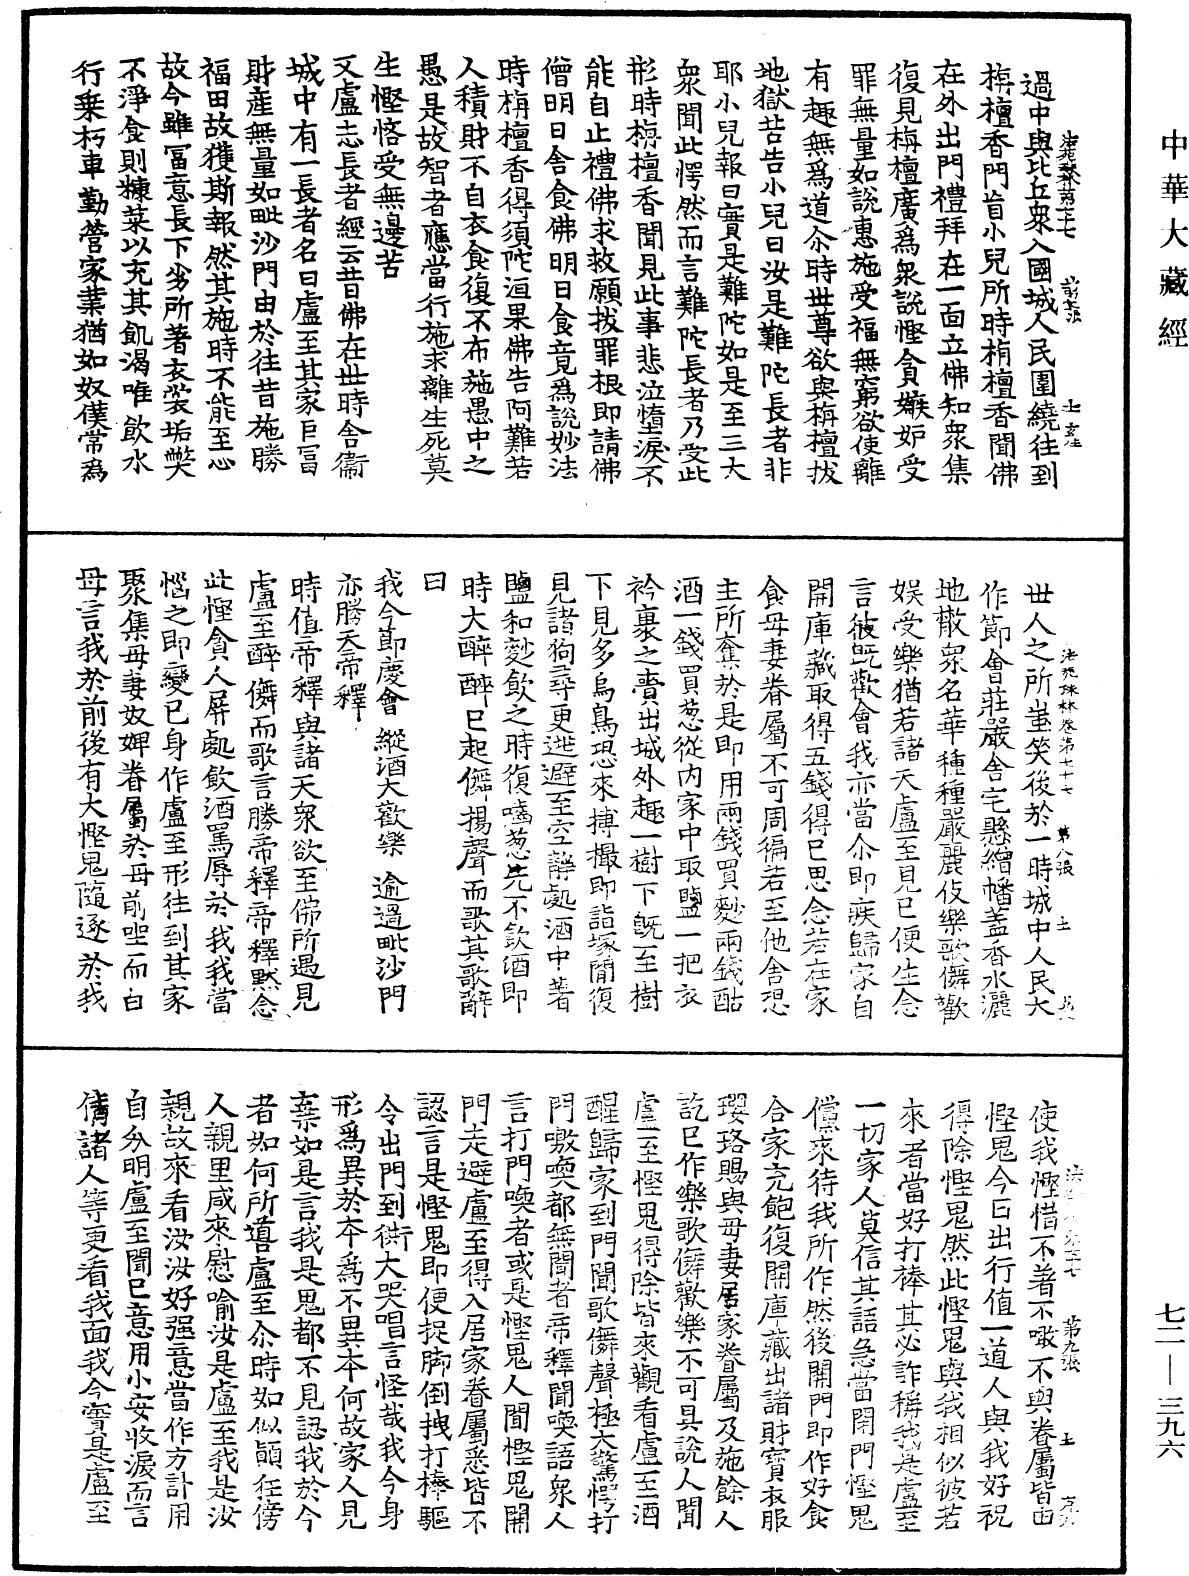 中華大藏經
過中與比丘眾入國城人民圍繞往到
栴檀香門首小兒所時栴檀香聞佛
在外出門禮拜在一面立佛知眾集
復見栴檀廣為眾說慳貪嫉妒受
罪無量如說惠施受福無窮欲使離
有趣無為道尒時世尊欲與栴檀拔
地獄苦告小兒曰汝是難陀長者非
耶小兒報曰實是難陀如是至三大
眾聞此愕然而言難陀長者乃受此
形時栴檀香聞見此事悲泣墮淚不
能自止禮佛求救願拔罪根即請佛
僧明日舍食佛明日食竟為說妙法
時栴檀香得須陀洹果佛告阿難若
人積財不自衣食復不布施愚中之
愚是故智者應當行施求離生死莫
生慳悋受無邊苦
又盧志長者經云昔佛在世時舍衛
城中有一長者名曰盧至其家巨富
財產無量如毗沙門由於往昔施勝
福田故獲斯報然其施時不能至心
故今雖冨意長下劣所著衣裳垢弊
不淨食則糠菜以充其飢渴唯飲水
行乘朽車勤營家業猶如奴僕常為
法苑珠林卷第七十七 第八張
世人之所蚩笑後於一時城中人民大
作節會莊嚴舍宅懸繒幡蓋香水灑
地散眾名華種種嚴麗伎樂歌儛歡
娛受樂猶若諸天盧至見已便生念
言彼既歡會我亦當尒即疾歸家自
開庫藏取得五錢得已思念若在家
食母妻眷屬不可周徧若至他舍恐
主所奪於是即用兩錢買麨兩錢酤
酒一錢買葱從內家中取鹽一把衣
衿裹之賣出城外趣一樹下既至樹
下見多烏鳥恐來摶撮即詣塚閒復
見諸狗尋更逃避至空靜處酒中著
鹽和麨飲之時復嚙葱先不飲酒即
時大醉醉已起儛揚聲而歌其歌辭
曰
我今節慶會 縱酒大歡樂 逾過毗沙門
亦勝天帝釋
時值帝釋與諸天眾欲至佛所遇見
盧至醉儛而歌言勝帝釋帝釋默念
此慳貪人屏處飲酒罵辱於我我當
惱之即變已身作盧至形往到其家
聚集母妻奴婢眷屬於母前坐而白
母言我於前後有大慳鬼隨逐於我
第九張
使我慳惜不著不噉不與眷屬皆由
慳鬼今日出行值一道人與我好祝
得除慳鬼然此慳鬼與我相似彼若
來者當好打棒其必詐稱我是盧至
一切家人莫信其語急當閉門慳鬼
儻來待我所作然後開門即作好食
合家充飽復開庫藏出諸財寶衣服
瓔珞賜與母妻居家眷屬及施餘人
訖已作樂歌儛歡樂不可具說人聞
盧至慳鬼得除皆來觀看盧至酒
醒歸家到門聞歌儛聲極大驚愕打
門噭喚都無聞者帝釋聞喚語眾人
言打門喚者或是慳鬼人聞慳鬼開
門走避盧至得入居家眷屬悉皆不
認言是慳鬼即便捉腳倒拽打棒驅
令出門到街大哭唱言怪哉我今身
形為異於本為不異本何故家人見
棄如是言我是鬼都不見認我於今
者如何所噵盧至尒時如似顛狂傍
人親里咸來慰喻汝是盧至我是汝
親故來看汝汝好强意當作方計用
自分明盧至聞已意用小安收淚而言
倩諸人等更看我面我今實是盧至
七二—三九六